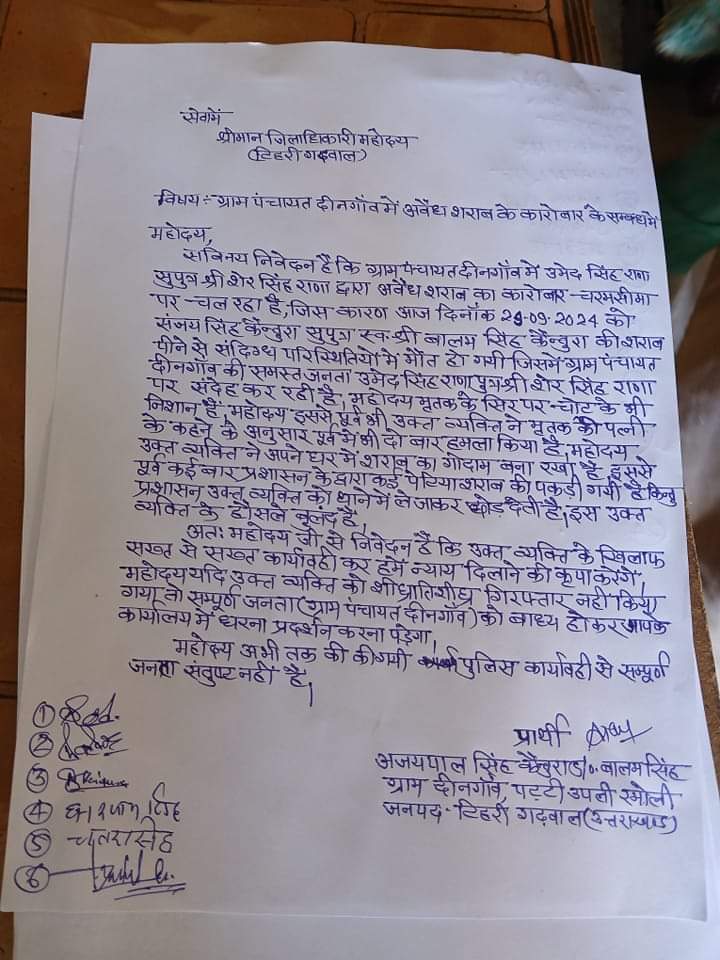 सेवामें
श्रीमान जिलाधिकारी महोदय
(टिहरी गढ़वाल)
विषय :- ग्राम पंचायत दीनगाँव में अवैध शराब के कारोबार के सम्बन्ध में
महोदय,
सविनय निवेदन है कि ग्राम पंचायत दीनगाँव में उमेद सिंह राणा
सुपुत्र श्री शेर सिंह राणा द्वारा अवैध शराब का कारोबार चरमसीमा
पर चल रहा है, जिस कारण आज दिनांक 29-09-2024 को
संजय सिंह कैन्तुरा सुपुत्र स्व॰ श्री बालम सिंह कैन्तुरा की शराब
पीने से संदिग्ध परिस्थितियों में मौत हो गयी जिसमें ग्राम पंचायत
दीनगाँव की समस्त जनता उमेद सिंह राणा पुत्र श्री शेर सिंह राणा
पर संदेह कर रही है, महोदय मृतक के सिर पर चोट के भी
निशान हैं, महोदय इससे पूर्व भी उक्त व्यक्ति ने मृतक की पत्नी
के कहने के अनुसार पूर्व में भी दो बार हमला किया है, महोदय
उक्त व्यक्ति ने अपने घर में शराब का गोदाम बना रखा है इससे
पूर्व कई बार प्रशासन के द्वारा कई पेटिया शराब की पकड़ी गयी है किन्तु
प्रशासन उक्त व्यक्ति को थाने में ले जाकर छोड़ देती है। इस उक्त
व्यक्ति के हौसले बुलंद है,
अतः महोदय जी से निवेदन है कि उक्त व्यक्ति के खिलाफ
सख्त से सख्त कार्यावही कर हमें न्याय दिलाने की कृपा करेंगे,
महोदय यदि उक्त व्यक्ति को शीघ्रातिशीघ्र गिरफ्तार नहीं किया
गया तो सम्पूर्ण जनता (ग्राम पंचायत दीनगाँव) को बाध्य होकर आपके
कार्यालय में धरना प्रदर्शन करना पड़ेगा,
महोदय अभी तक की कीगयी पुलिस कार्यावही से सम्पूर्ण
जनता संतुष्ट नहीं है,
①
②
③
④ सिंह
⑤
⑥
प्रार्थी
अजयपाल सिंह कैन्तुरा S/o. बालम सिंह
ग्राम दीनगाँव, पट्टी उपली रमोली
जनपद - टिहरी गढ़वाल (उत्तराखण्ड)